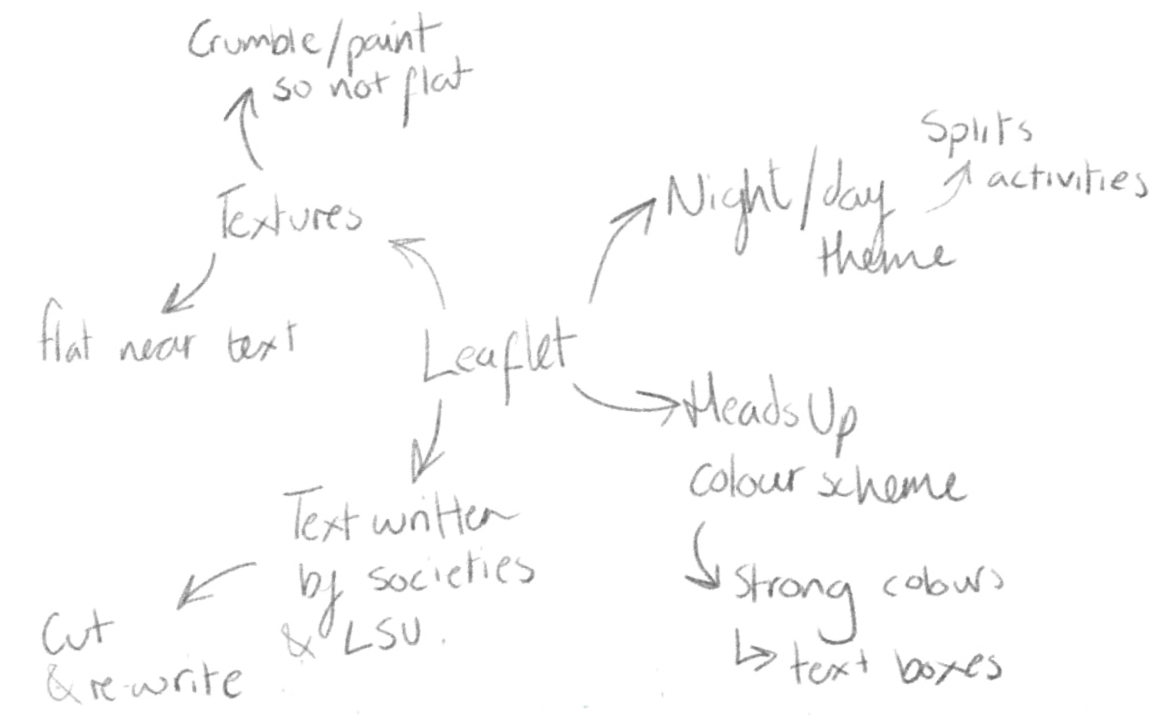 Crumble/paint
so not flat
Textures
flat near text
Leaflet
Night/day
theme
Splits
activities
Heads Up
colour scheme
Strong colours
text boxes
Text written
by societies
& LSU.
Cut
& re-write